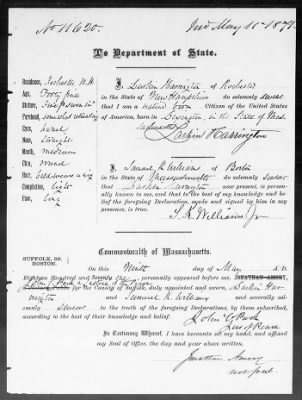 No 11620.
To Department of State.
Residence, Rochester N.H.
Age, Forty five
Stature, Five feet
Forehead,
Eyes, hazel
Nose, straight
Mouth, medium
Chin, round
Hair,
Complexion, light
Face, long
I, Larkin Harrington of Rochester
in the State of New Hampshire do solemnly swear
that I am a native born Citizen of the United States
of America, born in Lexington, in the State of Mas
sachusetts
Larkin Harrington
I, Samuel K Williams of Boston
in the State of Massachusetts do solemnly swear
that Larkin Harrington now present, is personally
known to me, and that to the best of my knowledge and belief
the foregoing Declaration, made and signed by him in my
presence, is true.
S. K. Williams Jr
Commonwealth of Massachusetts.
SUFFOLK, SS.
BOSTON.
On this Ninth day of May A.D.
Eighteen Hundred and Seventy personally appeared before me, JONATHAN AMORY,
John C Park a Justice of the Peace
for the County of Suffolk, duly appointed and sworn, Larkin Har
rington and Samuel K Williams and
severally swear to the truth of the foregoing Declarations, by them subscribed,
according to the best of their knowledge and belief.
John C Park
Jus of Peace
In Testimony Whereof, I have hereunto set my hand, and affixed
my Seal of Office, the day and year above written.
Jonathan Amory
not pub.